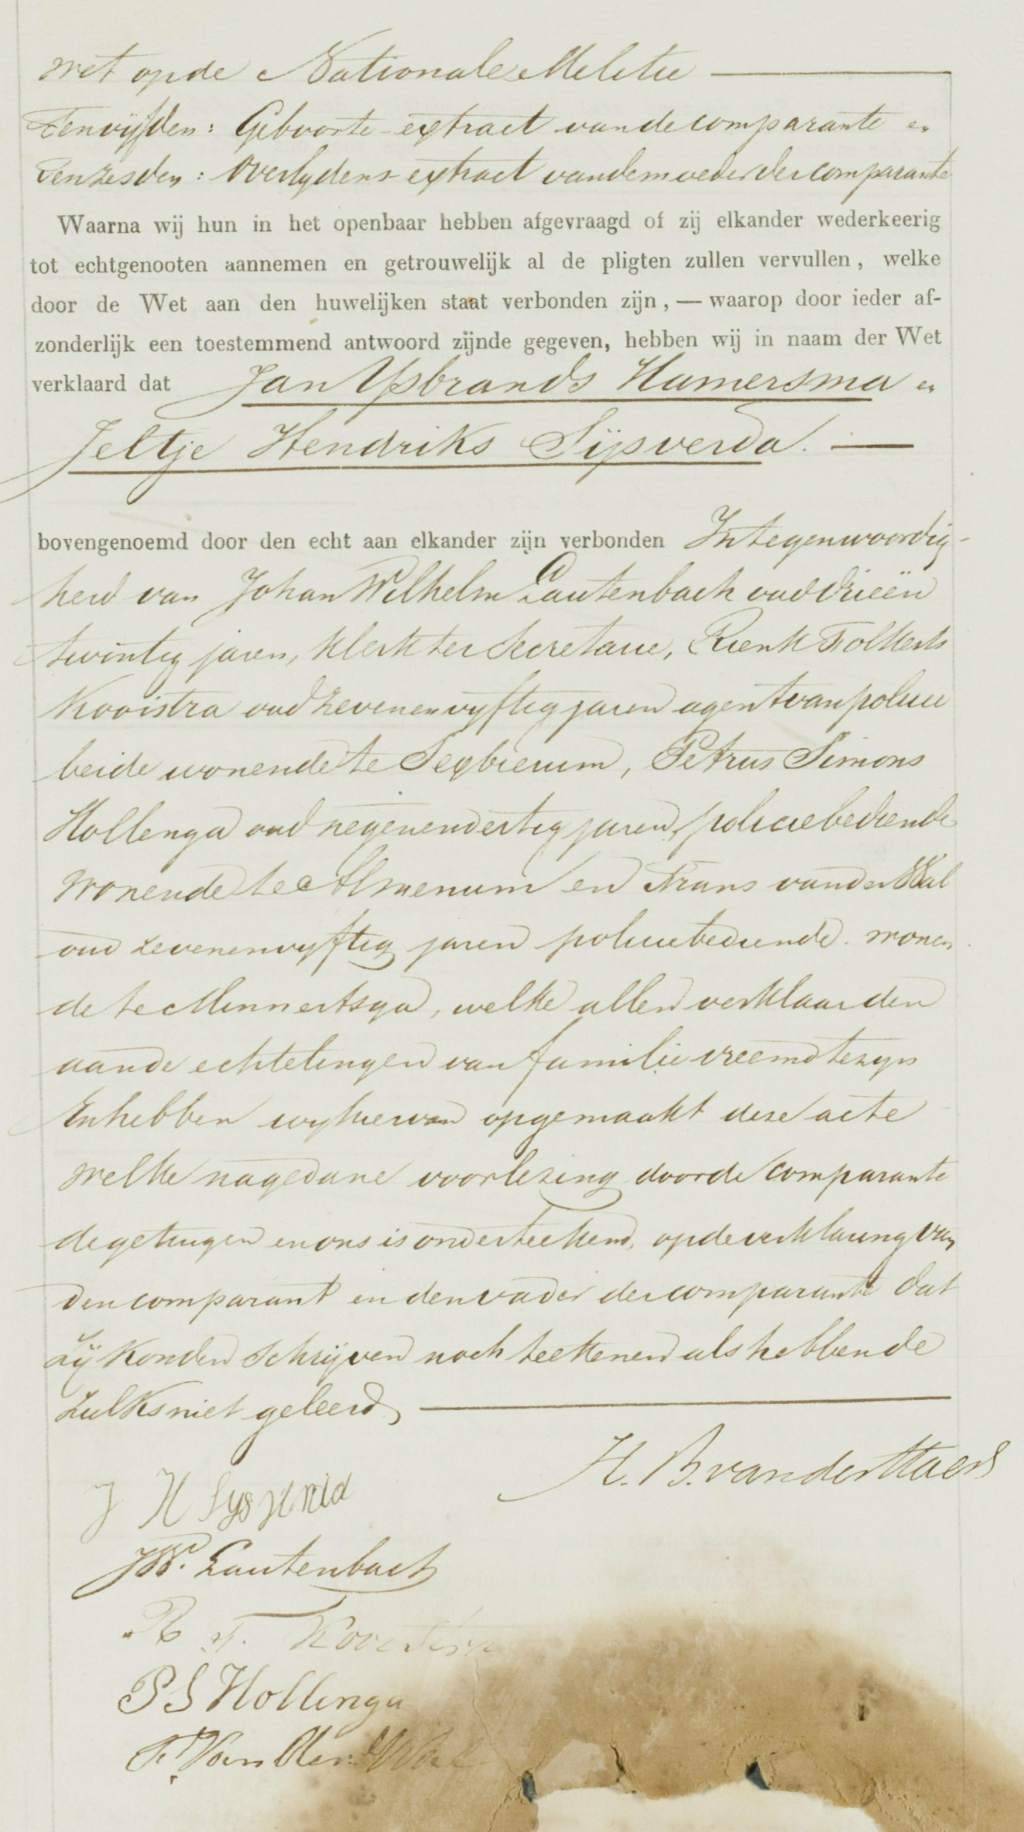 wet op de Nationale Militie
Tenvijfden: Geboorte-extract van de comparante en
Tenzesden: Overlydens-extract van de moeder der comparante
Waarna wij hun in het openbaar hebben afgevraagd of zij elkander wederkeerig
tot echtgenooten aannemen en getrouwelijk al de pligten zullen vervullen, welke
door de Wet aan den huwelijken staat verbonden zijn, — waarop door ieder af-
zonderlijk een toestemmend antwoord zijnde gegeven, hebben wij in naam der Wet
verklaard dat Jan Ypbrands Hamersma en
Jeltje Hendriks Sijsverda. —
bovengenoemd door den echt aan elkander zijn verbonden In tegenwoordig-
heid van Johan Wilhelm Lautenbach oud drieën
twintig jaren, klerk ter Secretarie, Rienk Folkerts
Kooistra oud zevenenvyftig jaren agent van policie
beide wonende te Sexbierum, Petrus Simons
Hollenga oud negenendertig jaren, policiebediende
wonende te Almenum en Frans van der Wal
oud zevenenvyftig jaren policiebediende wonen
de te Minnertsga, welke allen verklaarden
aan de echtelingen van familie vreemd te zyn
En hebben wy hiervan opgemaakt deze acte
welke na gedane voorlezing door de comparante
de getuigen en ons is onderteekend, op de verklaring van
den comparant en den vader der comparante dat
zij konden schrijven noch teekenen als hebbende
zulks niet geleerd,
H. B. van der Haer
J H
JW. Lautenbach
R F. Kooistra
P S Hollenga
F. Van der Wal